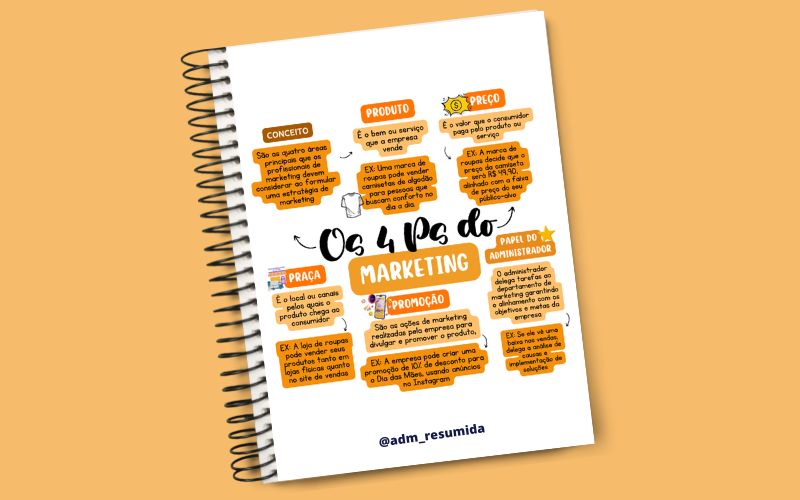 CONCEITO
São as quatro áreas
principais que os
profissionais de
marketing devem
considerar ao formular
uma estratégia de
marketing
PRODUTO
É o bem ou serviço
que a empresa
vende
EX: Uma marca de
roupas pode vender
camisetas de algodão
para pessoas que
buscam conforto no
dia a dia.
PREÇO
É o valor que o consumidor
paga pelo produto ou
serviço
EX: A marca de
roupas decide que o
preço da camiseta
será R$ 49,90,
alinhado com a faixa
de preço do seu
público-alvo
Os 4 Ps do
MARKETING
PRAÇA
É o local ou canais
pelos quais o
produto chega ao
consumidor
EX: A loja de roupas
pode vender seus
produtos tanto em
lojas físicas quanto
no site de vendas
PROMOÇÃO
São as ações de marketing
realizadas pela empresa para
divulgar e promover o produto.
EX: A empresa pode criar uma
promoção de 10% de desconto para
o Dia das Mães, usando anúncios
no Instagram
PAPEL DO
ADMINISTRADOR
O administrador
delega tarefas ao
departamento de
marketing garantindo
o alinhamento com os
objetivos e metas da
empresa
EX: Se ele vê uma
baixa nas vendas,
delega a análise de
causas e
implementação de
soluções
@adm_resumida